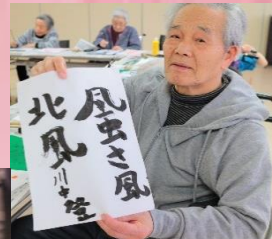 風虫さ風
北風
川中登